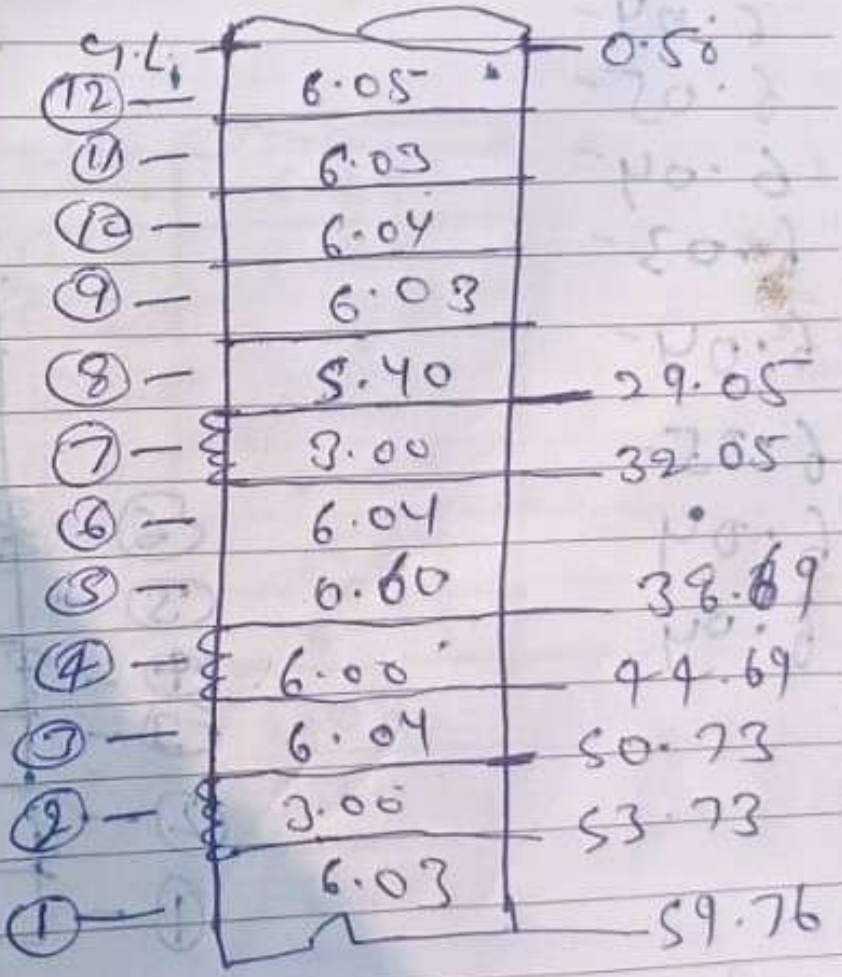 G.L. 0.50
12 6.05
11 6.03
10 6.04
9 6.03
8 5.40 29.05
7 3.00 32.05
6 6.04
5 0.60 38.69
4 6.00 44.69
3 6.04 50.73
2 3.00 53.73
1 6.03 59.76